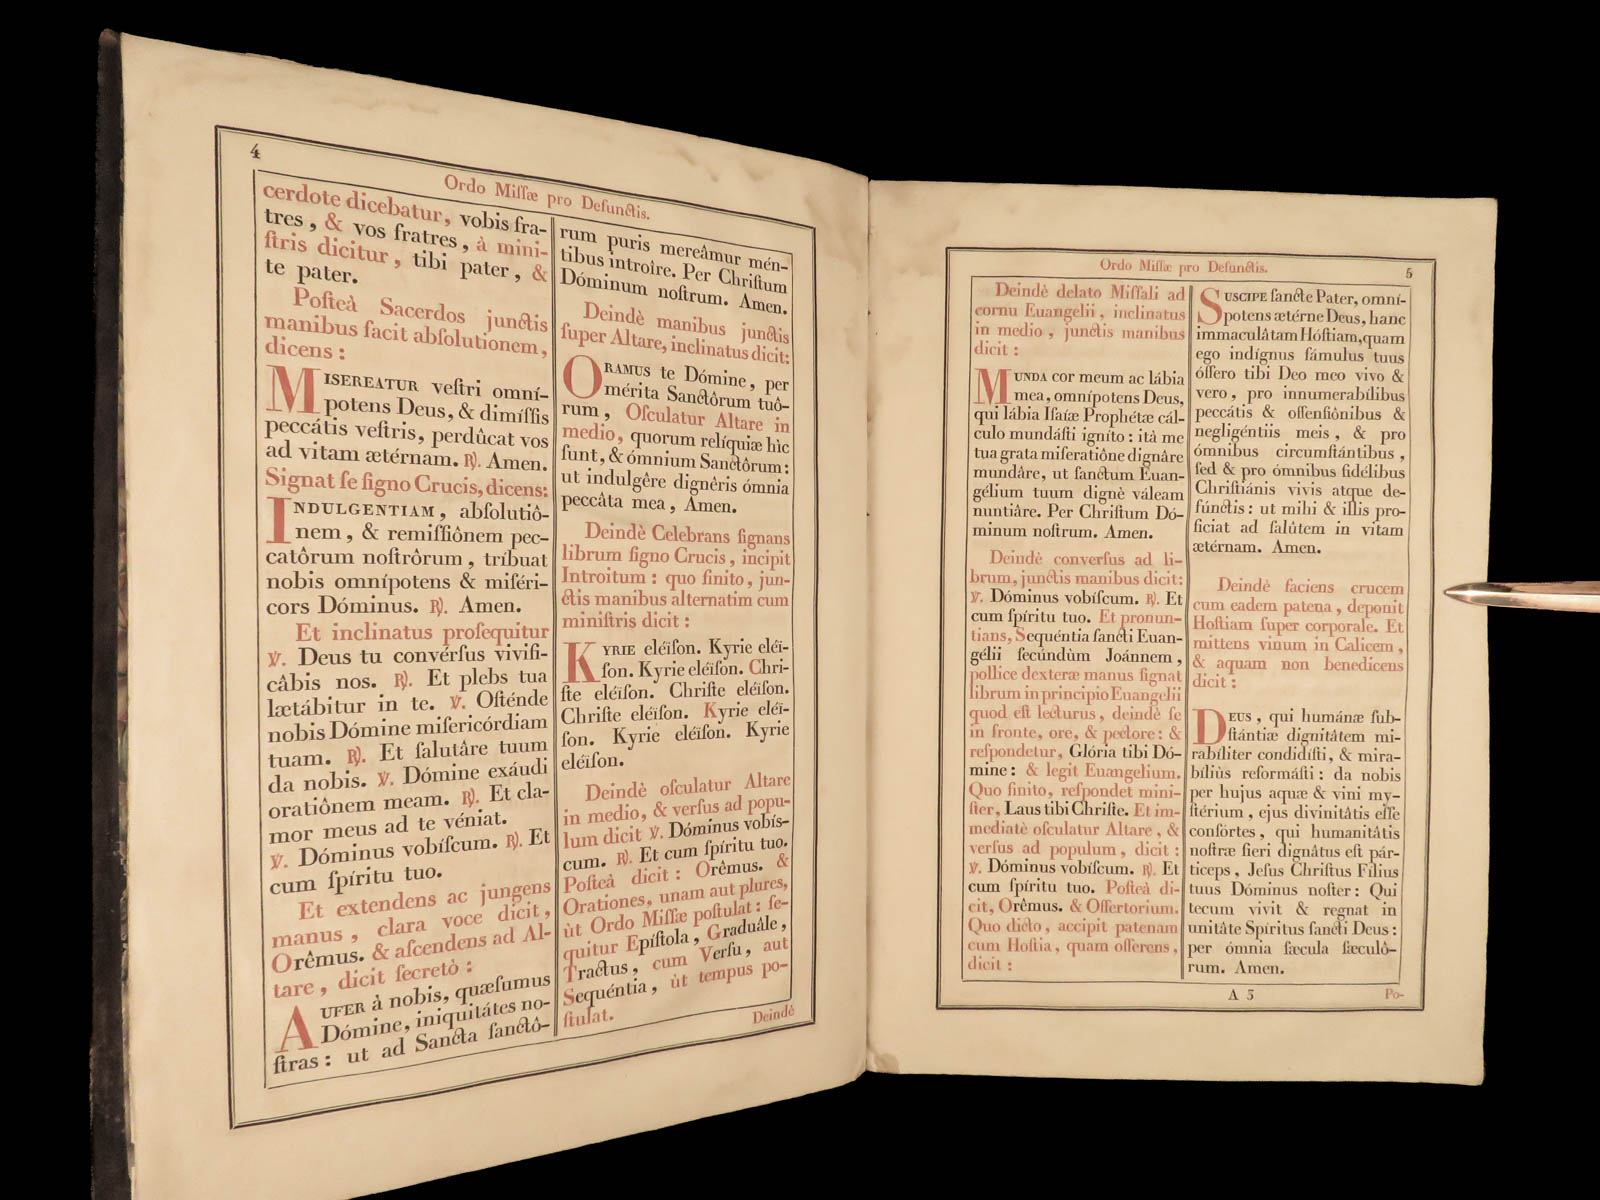 4
Ordo Miſſæ pro Defunctis.
cerdote dicebatur, vobis fra-
tres, & vos fratres, à mini-
ſtris dicitur, tibi pater, &
te pater.
Poſteà Sacerdos junctis
manibus facit abſolutionem,
dicens :
MISEREATUR veſtri omní-
potens Deus, & dimíſſis
peccátis veſtris, perdûcat vos
ad vitam ætérnam. ℟. Amen.
Signat ſe ſigno Crucis, dicens:
INDULGENTIAM, abſolutiô-
nem, & remiſſiônem pec-
catôrum noſtrôrum, tríbuat
nobis omnípotens & miſéri-
cors Dóminus. ℟. Amen.
Et inclinatus proſequitur
℣. Deus tu convérſus vivifi-
câbis nos. ℟. Et plebs tua
lætábitur in te. ℣. Oſténde
nobis Dómine miſericórdiam
tuam. ℟. Et ſalutâre tuum
da nobis. ℣. Dómine exáudi
oratiônem meam. ℟. Et cla-
mor meus ad te véniat.
℣. Dóminus vobíſcum. ℟. Et
cum ſpíritu tuo.
Et extendens ac jungens
manus, clara voce dicit,
Orêmus. & aſcendens ad Al-
tare, dicit ſecretò :
AUFER à nobis, quæſumus
Dómine, iniquitátes no-
ſtras : ut ad Sancta ſanctô-
rum puris mereâmur mén-
tibus introîre. Per Chriſtum
Dóminum noſtrum. Amen.
Deindè manibus junctis
ſuper Altare, inclinatus dicit:
ORAMUS te Dómine, per
mérita Sanctôrum tuô-
rum, Oſculatur Altare in
medio, quorum relíquiæ hìc
ſunt, & ómnium Sanctôrum :
ut indulgêre dignêris ómnia
peccâta mea, Amen.
Deindè Celebrans ſignans
librum ſigno Crucis, incipit
Introitum : quo finito, jun-
ctis manibus alternatim cum
miniſtris dicit :
KYRIE eléïſon. Kyrie eléï-
ſon. Kyrie eléïſon. Chri-
ſte eléïſon. Chriſte eléïſon.
Chriſte eléïſon. Kyrie eléï-
ſon. Kyrie eléïſon. Kyrie
eléïſon.
Deindè oſculatur Altare
in medio, & verſus ad popu-
lum dicit ℣. Dóminus vobíſ-
cum. ℟. Et cum ſpíritu tuo.
Poſteà dicit : Orêmus. &
Orationes, unam aut plures,
ùt Ordo Miſſæ poſtulat : ſe-
quitur Epíſtola, Graduâle,
Tractus, cum Verſu, aut
Sequéntia, ùt tempus po-
ſtulat.
Deindè
Ordo Miſſæ pro Defunctis.
5
Deindè delato Miſſali ad
cornu Euangelii, inclinatus
in medio, junctis manibus
dicit :
MUNDA cor meum ac lábia
mea, omnípotens Deus,
qui lábia Iſaíæ Prophétæ cál-
culo mundáſti igníto : ità me
tua grata miſeratiône dignâre
mundâre, ut ſanctum Euan-
gélium tuum dignè váleam
nuntiâre. Per Chriſtum Dó-
minum noſtrum. Amen.
Deindè converſus ad li-
brum, junctis manibus dicit:
℣. Dóminus vobíſcum. ℟. Et
cum ſpíritu tuo. Et pronun-
tians, Sequéntia ſancti Euan-
gélii ſecúndùm Joánnem,
pollice dexteræ manus ſignat
librum in principio Euangelii
quod eſt lecturus, deindè ſe
in fronte, ore, & pectore : &
reſpondetur, Glória tibi Dó-
mine : & legit Euangelium.
Quo finito, reſpondet mini-
ſter, Laus tibi Chriſte. Et im-
mediatè oſculatur Altare, &
verſus ad populum, dicit :
℣. Dóminus vobíſcum. ℟. Et
cum ſpíritu tuo. Poſteà di-
cit, Orêmus. & Offertorium.
Quo dicto, accipit patenam
cum Hoſtia, quam offerens,
dicit :
SUSCIPE ſancte Pater, omní-
potens ætérne Deus, hanc
immaculâtam Hóſtiam, quam
ego indígnus fámulus tuus
óffero tibi Deo meo vivo &
vero, pro innumerabílibus
peccátis & offenſiônibus &
negligéntiis meis, & pro
ómnibus circumſtántibus,
ſed & pro ómnibus fidélibus
Chriſtiánis vivis atque de-
fúnctis : ut mihi & illis pro-
ficiat ad ſalûtem in vitam
ætérnam. Amen.
Deindè faciens crucem
cum eadem patena, deponit
Hoſtiam ſuper corporale. Et
mittens vinum in Calicem,
& aquam non benedicens
dicit :
DEUS, qui humánæ ſub-
ſtántiæ dignitâtem mi-
rabíliter condidíſti, & mira-
bíliùs reformáſti : da nobis
per hujus aquæ & vini my-
ſtérium, ejus divinitâtis eſſe
conſortes, qui humanitâtis
noſtræ fieri dignâtus eſt pár-
ticeps, Jeſus Chriſtus Fílius
tuus Dóminus noſter : Qui
tecum vivit & regnat in
unitâte Spíritus ſancti Deus :
per ómnia ſæcula ſæculô-
rum. Amen.
A 3
Po-